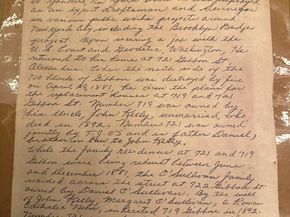 an expert draftsman and Surveyor
in various public works projects around
New York City including the Brooklyn Bridge
project. Upon securing a job with the
U.S. Coast and Geodetic, Washington, He
returned to his home at 721 Gibbon St
Alexandria. Later the north side of the
700 block of Gibbon was destroyed by fire
on April 29, 1881. He drew the plans for
the replacement houses at 719 and 721
Gibbon St. Number 719 was owned by
his Uncle, John Kelly, unmarried, who
died in 1892. Number 721 was owned
jointly by T.J.OS and is father Daniel,
brother in law to John Kelly.
While the family residences at 721 and 719
Gibbon were being rebuilt between June
and December 1881, the O'Sullivan Family
lived across the street at 722 Gibbon St
owned by Daniel O'Sullivan. By the will
of John Kelly, Margaret O'Sullivan, a Roman
inherited 719 Gibbon in 1892.